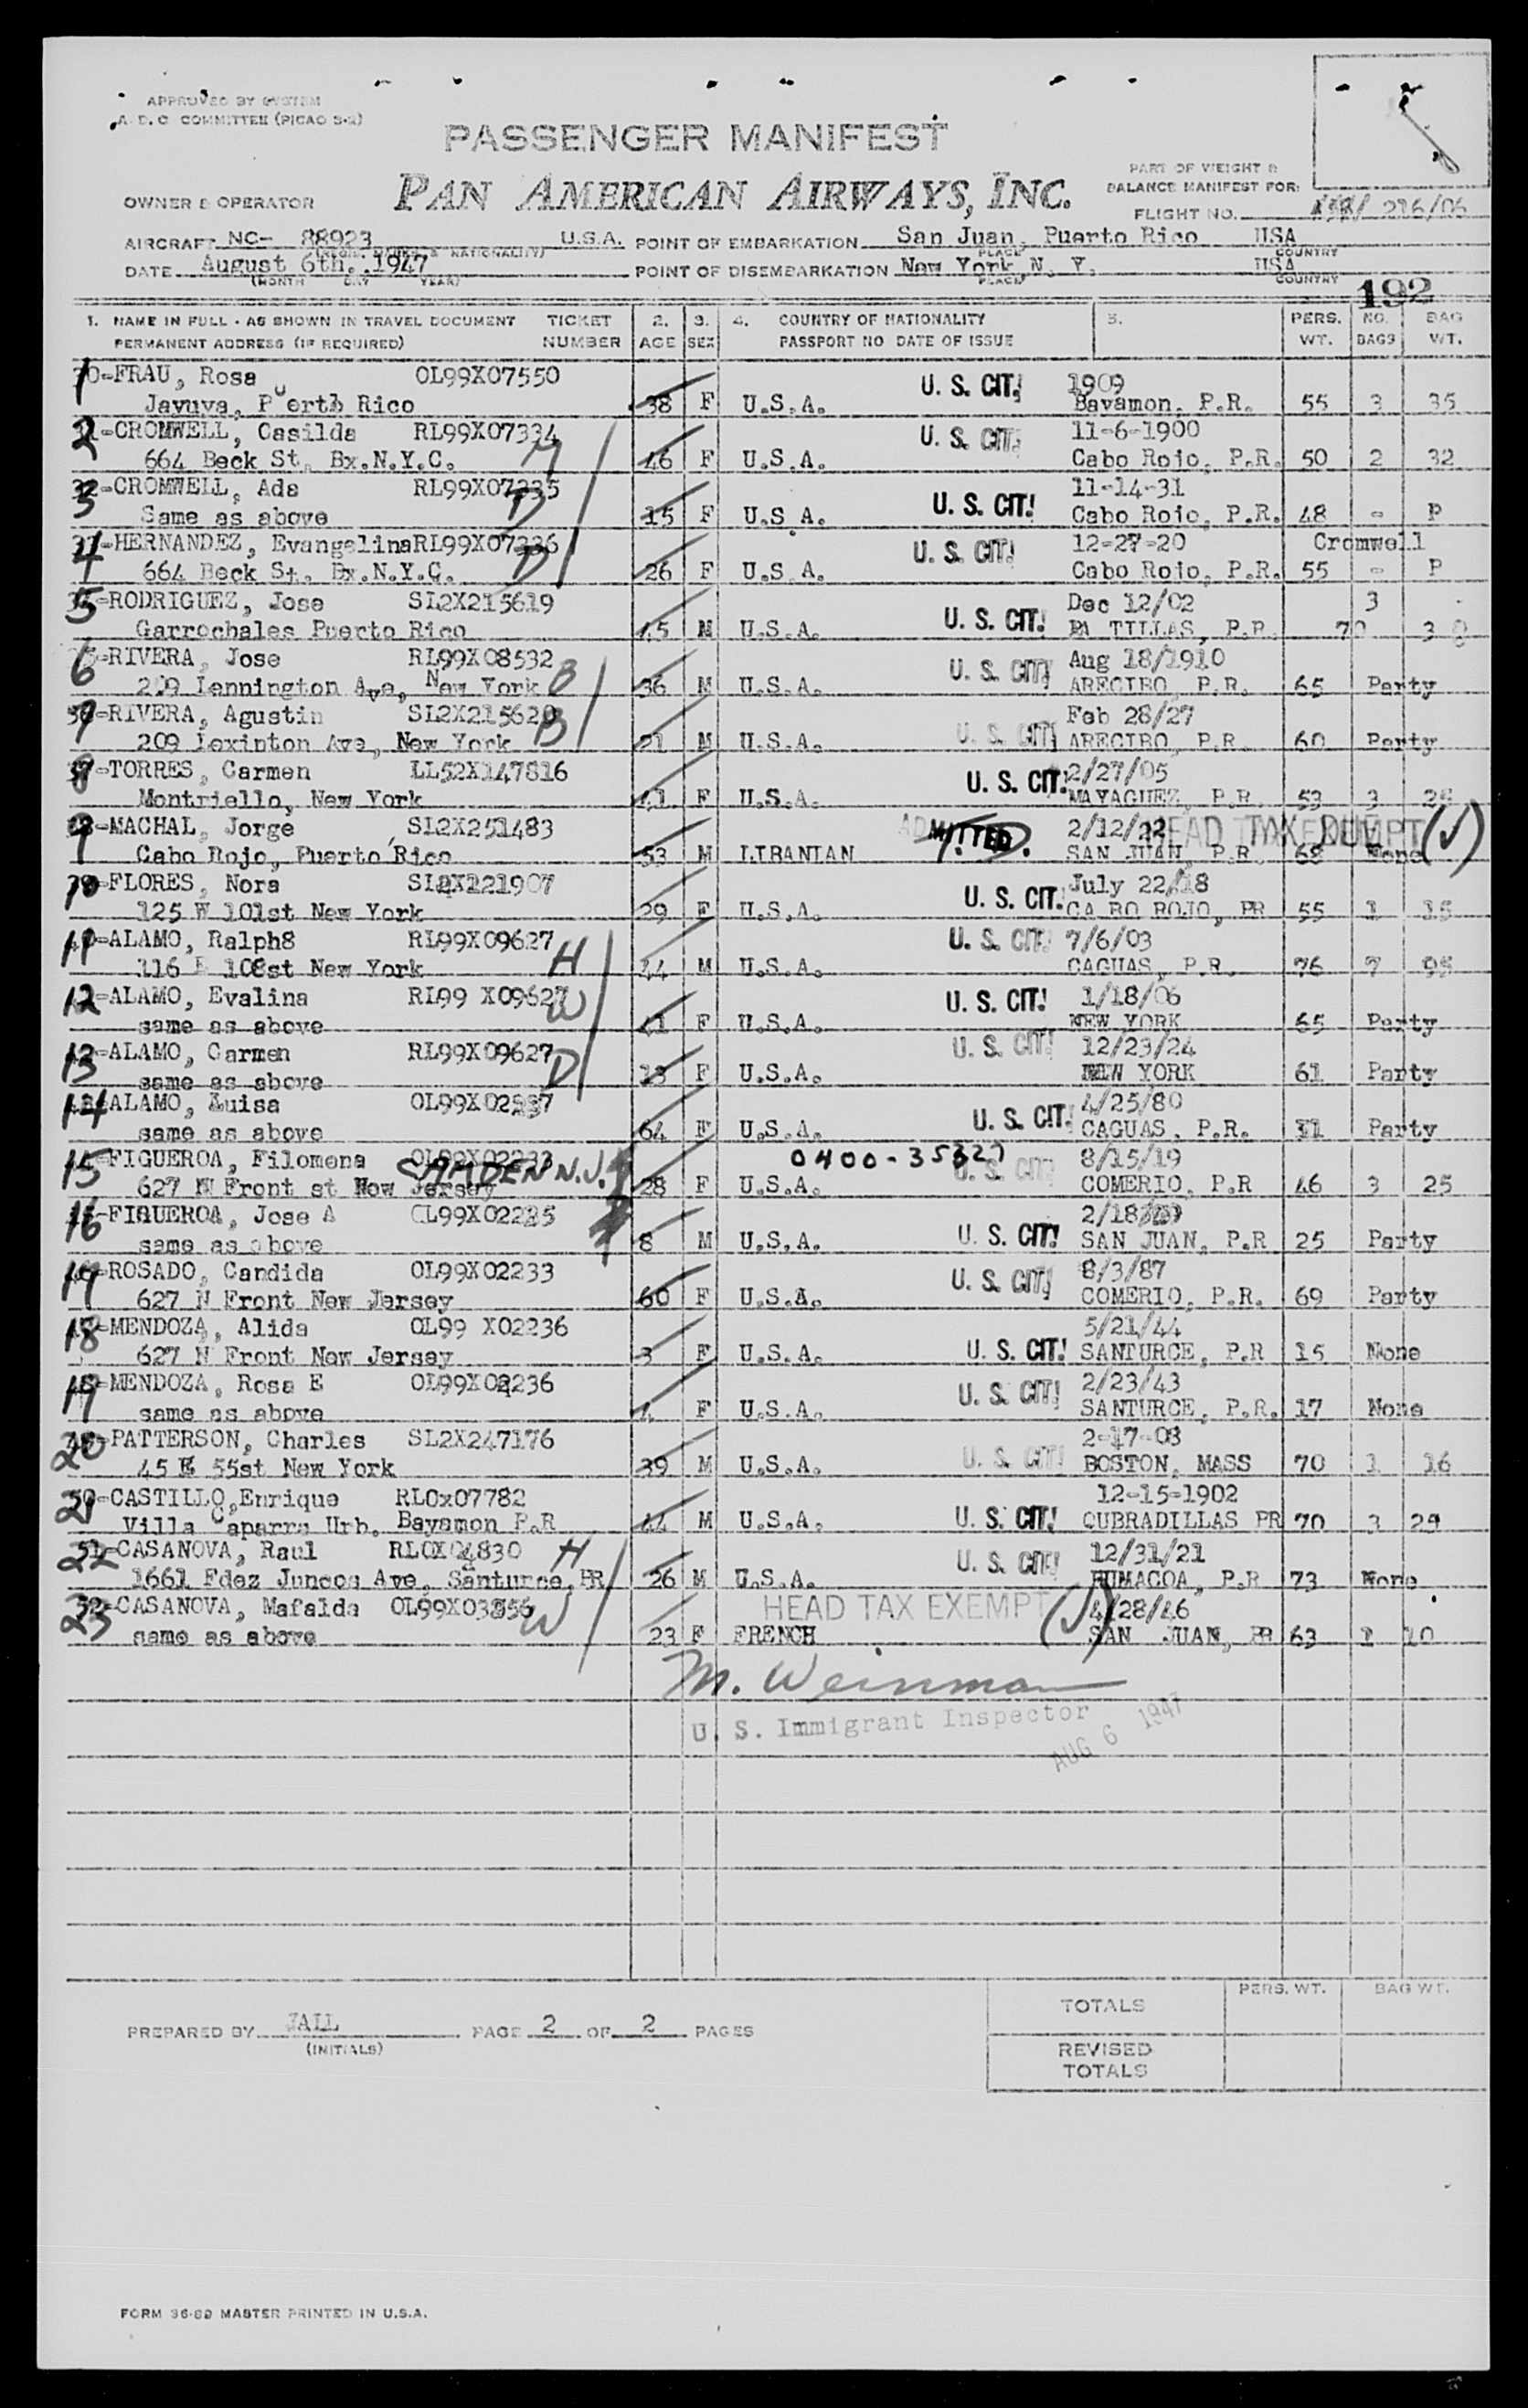 APPROVED BY SYSTEM
A. D. C COMMITTEE (PICAO S-2)
PASSENGER MANIFEST
PAN AMERICAN AIRWAYS, INC.
PART OF WEIGHT &
BALANCE MANIFEST FOR:
OWNER & OPERATOR
FLIGHT NO. 216/06
AIRCRAFT NC- 88923 U.S.A. POINT OF EMBARKATION San Juan, Puerto Rico USA
NATIONALITY) PLACE COUNTRY
DATE August 6th. 1947 POINT OF DISEMBARKATION New York N. Y. USA
(MONTH DAY YEAR) PLACE COUNTRY
192
1. NAME IN FULL - AS SHOWN IN TRAVEL DOCUMENT TICKET 2. 3. 4. COUNTRY OF NATIONALITY 5. PERS. NO. BAG
PERMANENT ADDRESS (IF REQUIRED) NUMBER AGE SEX PASSPORT NO DATE OF ISSUE WT. BAGS WT.
1 FRAU, Rosa OL99X07550 U. S. CIT. 1909
Jayuya, Puertb Rico 38 F U.S.A. Bayamon, P.R. 55 3 35
2 CROMWELL, Casilda RL99X07334 M U. S. CIT. 11-6-1900
664 Beck St. Bx.N.Y.C. 46 F U.S.A. Cabo Rojo, P.R. 50 2 32
3 CROMWELL, Ada RL99X07335 D U. S. CIT. 11-14-31
Same as above 15 F U.S A. Cabo Rojo, P.R. 48 - P
4 HERNANDEZ, Evangelina RL99X07336 D U. S. CIT. 12-27-20 Cromwell
664 Beck St. Bx.N.Y.C. 26 F U.S A. Cabo Rojo, P.R. 55 - P
5 RODRIGUEZ, Jose SL2X215619 U. S. CIT. Dec 12/02 3
Garrochales Puerto Rico 45 M U.S.A. PA TILLAS, P.R. 70 38
6 RIVERA, Jose RL99X08532 B U. S. CIT. Aug 18/1910
209 Lennington Ave, New York 36 M U.S.A. ARECIBO, P.R. 65 Party
7 RIVERA, Agustin SL2X215620 B U. S. CIT. Feb 28/27
209 Lexinton Ave, New York 21 M U.S.A. ARECIBO, P.R. 60 Party
8 TORRES, Carmen LL52X147816 U. S. CIT. 2/27/05
Montriello, New York 41 F U.S.A. MAYAGUEZ, P.R. 53 3 25
9 MACHAL, Jorge SL2X251483 ADMITTED. 2/12/22 HEAD TAX EXEMPT (✓)
Cabo Rojo, Puerto Rico 53 M LIBANIAN SAN JUAN, P.R. 68 None
10 FLORES, Nora U. S. CIT. July 22/18
125 W 101st New York 29 F U.S.A. CA BO ROJO, PR 55 1 15
11 ALAMO, Ralph8 RL99X09627 H U. S. CIT. 7/6/03
116 E 108st New York 44 M U.S.A. CAGUAS, P.R. 76 7 95
12 ALAMO, Evalina RL99 X09627 W U. S. CIT. 1/18/06
same as above 41 F U.S.A. NEW YORK 65 Party
13 ALAMO, Carmen RL99X09627 D U. S. CIT. 12/23/24
same as above 13 F U.S.A. NEW YORK 61 Party
14 ALAMO, Luisa OL99X02237 U. S. CIT. 4/25/80
same as above 64 F U.S.A. CAGUAS, P.R. 51 Party
15 FIGUEROA, Filomena OL99X02233 CAMDEN N.J. 0400-35327 U. S. CIT. 8/15/19
627 N Front st New Jersey 28 F U.S.A. COMERIO, P.R 46 3 25
16 FIGUEROA, Jose A OL99X02235 U. S. CIT. 2/18/39
same as above 8 M U.S.A. SAN JUAN, P.R 25 Party
17 ROSADO, Candida OL99X02233 U. S. CIT. 8/3/87
627 N Front New Jersey 60 F U.S.A. COMERIO, P.R. 69 Party
18 MENDOZA, Alida OL99 X02236 U. S. CIT. 5/21/44
627 N Front New Jersey 3 F U.S.A. SANTURCE, P.R 15 None
19 MENDOZA, Rosa E OL99X02236 U. S. CIT. 2/23/43
same as above 4 F U.S.A. SANTURCE, P.R. 17 None
20 PATTERSON, Charles SL2X247176 U. S. CIT. 2-17-08
45 E 55st New York 39 M U.S.A. BOSTON, MASS 70 1 16
21 CASTILLO, Enrique RL0x07782 12-15-1902
Villa Caparra Urb. Bayamon P.R 44 M U.S.A. U. S. CIT. QUBRADILLAS PR 70 3 29
22 CASANOVA, Raul RL0X04830 H U. S. CIT. 12/31/21
1661 Fdez Juncos Ave, Santurce, PR 26 M U.S.A. HUMACOA, P.R 73 None
23 CASANOVA, Mafalda OL99X03356 W HEAD TAX EXEMPT (✓) 4/28/46
same as above 23 F FRENCH SAN JUAN, PR 63 1 10
M. Weinman
U. S. Immigrant Inspector
AUG 6 1947
PERS. WT. BAG WT.
TOTALS
PREPARED BY JAIL PAGE 2 OF 2 PAGES
(INITIALS)
REVISED
TOTALS
FORM 36-82 MASTER PRINTED IN U.S.A.